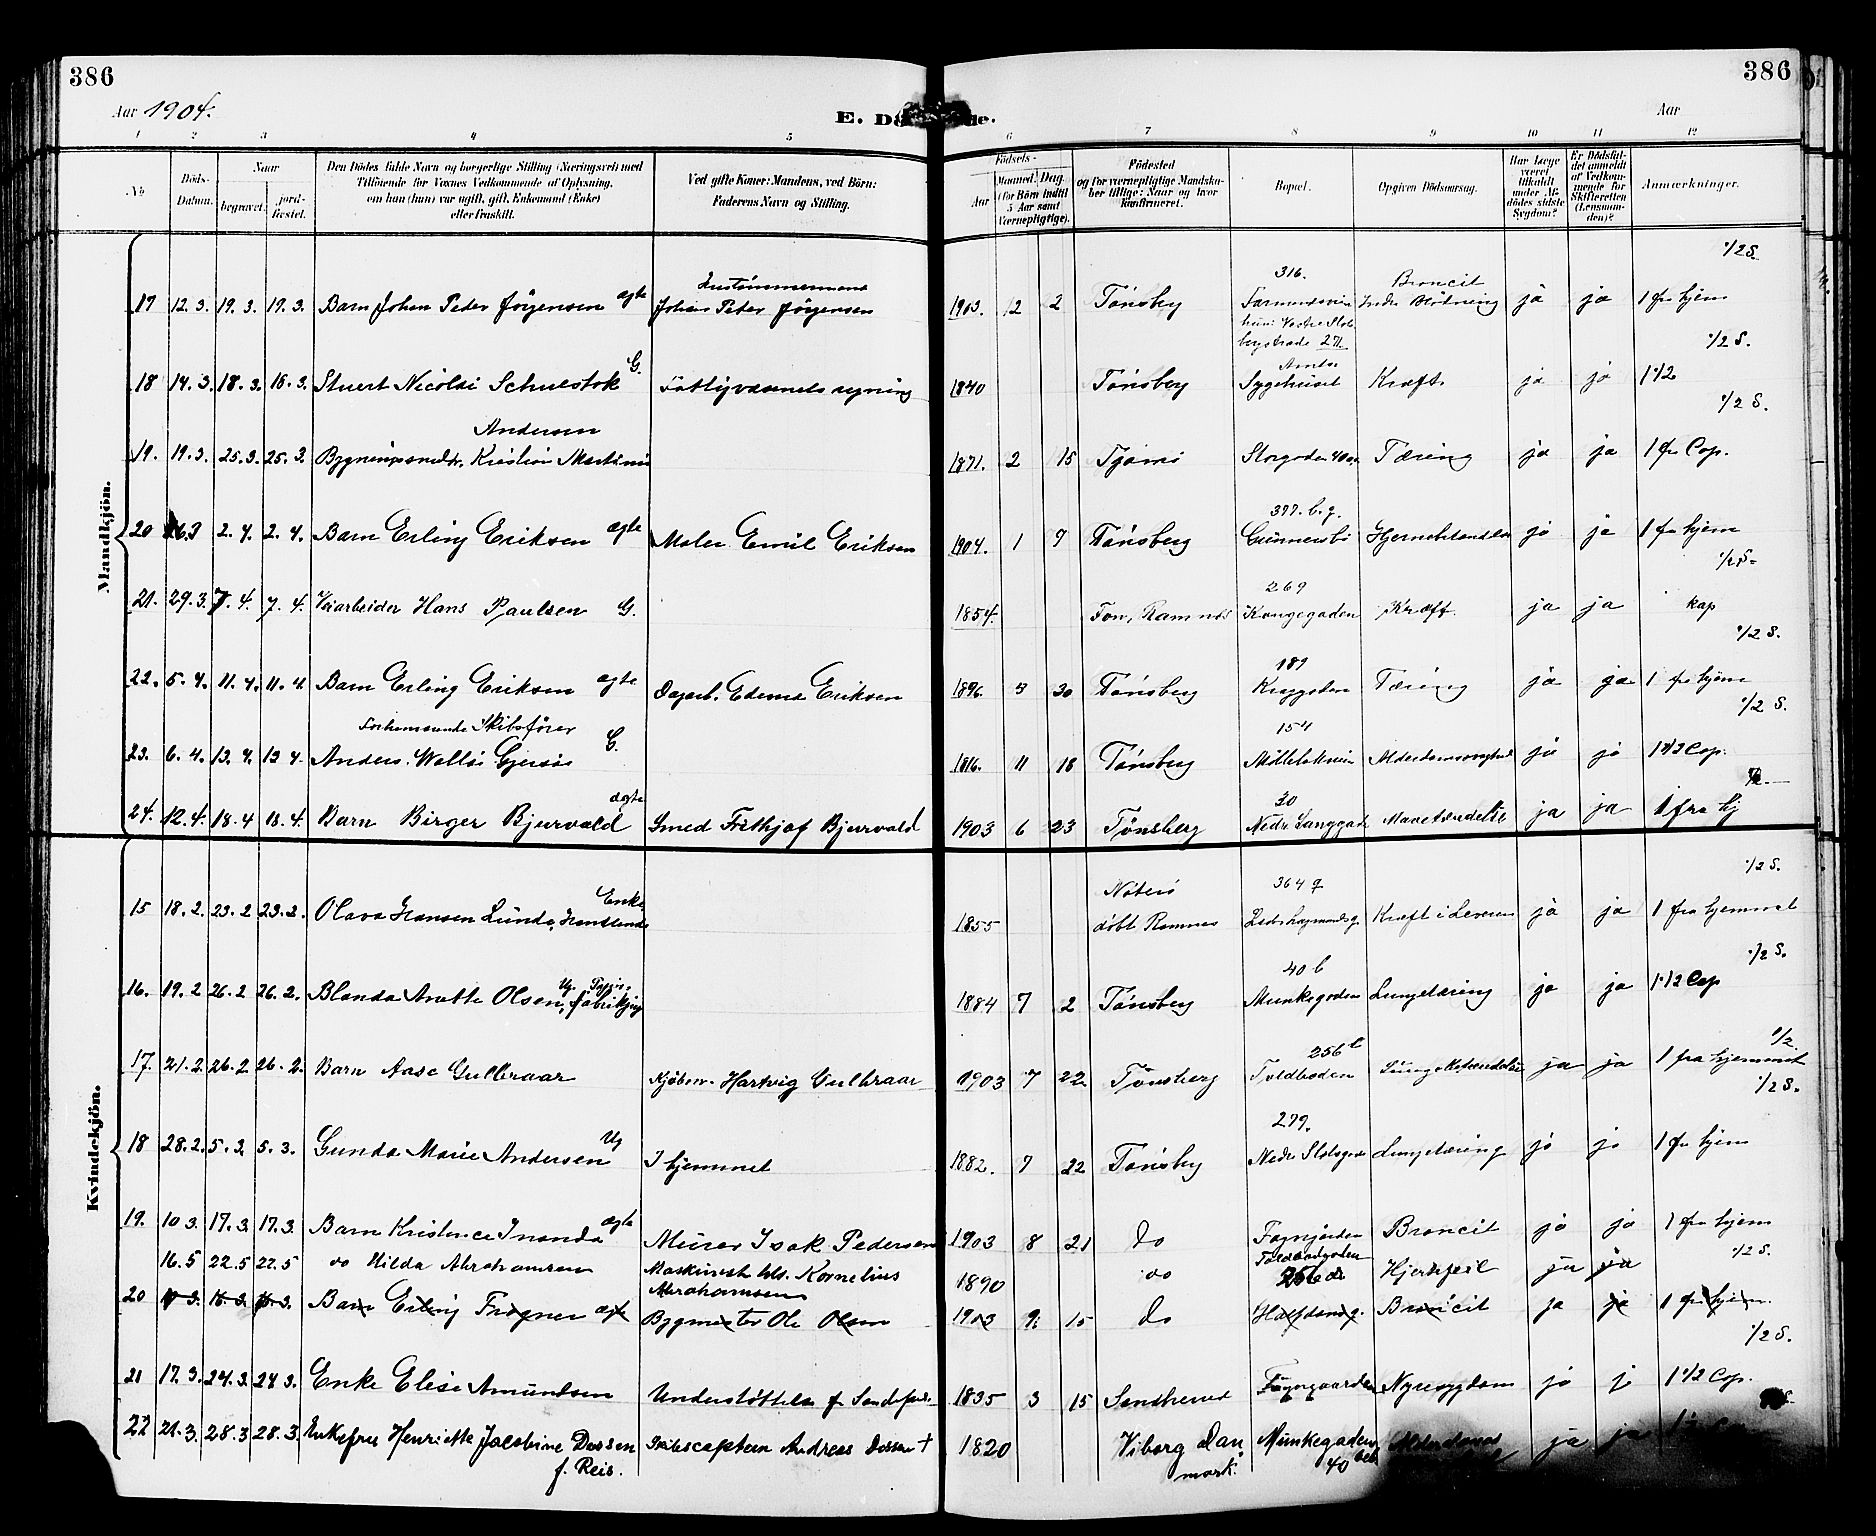 386
386
Aar 1904.
E. Dø de.
Aar
1 2 3 4 5 6 7 8 9 10 11 12
No
Döds-Datum.
Naar
begravet.
jord-fæstet.
Den Dödes fulde Navn og borgerlige Stilling (Næringsvei) med
Tilföiende for Voxnes Vedkommende af Oplysning,
om han (hun) var ugift, gift, Enkemand (Enke)
eller fraskilt.
Ved gifte Koner: Mandens, ved Börn:
Faderens Navn og Stilling.
Födsels-
Aar
Maaned. Dag.
(for Börn indtil 5 Aar samt Værnepligtige).
Födested
og for værnepligtige Mandskaber tillige: Naar og hvor konfirmeret.
Bopæl.
Opgiven Dödsaarsag.
Har Læge været tilkaldt under Afdödes sidste Sygdom?
Er Dödsfaldet anmeldt af Vedkommende for Skifteretten (Lensmanden)?
Anmærkninger.
Mandkjön.
1/2 S.
17 12.3. 19.3. 19.3. Barn Johan Peter Jörgensen ægte Johan Peter Jörgensen 1903. 12 2 Tönsberg 316. Broncit ja ja 1 fra hjem
1/2 S.
18 14.3. 18.3. 18.3. Stuert Nicolai Schulstok G. Fattigvæsenets regning 1840 Tönsberg Amts Sygehuset Kræft ja ja 1 1/2
1/2 S.
19. 19.3. 25.3. 25.3. Bygningssnedk. Kristian Martinus Andersen 1871. 2 15 Tjömö Storgaden Tæring ja ja 1 fra Cap.
20 26.3 2.4. 2.4. Barn Erling Eriksen ægte Maler Emil Eriksen 1904. 1 9 Tönsberg 397. b.g. Gunnersbö ja ja 1 fra hjem
1/2 S.
21. 29.3. 7.4. 7.4. Veiarbeider Hans Paulsen G. 1854. Fon, Ramnes 269 Kongegaden Kræft. ja ja kap
1/2 S.
22. 5.4. 11.4. 11.4. Barn Erling Eriksen ægte Dagarb. Edema Eriksen 1896 3 30 Tönsberg 181 Tæring ja ja 1 fra hjem
1/2 S.
23. 6.4. 13.4. 13.4. Forhenværende Skibsfører Anders Wallö G. 1816. 11 18 Tönsberg 154 Alderdomssvaghed ja ja 1 1/2 Cap.
24. 12.4. 18.4 18.4. Barn Birger Bjurvald ægte Smed Frithjof Bjurvald 1903 6 23 Tönsberg 30 Nedr Langgad ja ja 1 fra hj
Kvindekjön.
1/2 S.
15 18.2. 23.2 23.2. Olava Hansen Lunde, Enke 1855 Nöterö döbt Ramnes 364 g Kræft i Leveren ja ja 1 fra hjemmet
1/2 S.
16. 19.2 26.2 26.2. Blanda Anette Olsen, Ug. Papirfabrikpig 1884 7 2 Tönsberg 40 b Munkegaden Lungetæring ja ja 1 1/2 Cap
1/2.
17. 21.2. 26.2 26.2. Barn Aase Gulbraar Kjöbm. Hartvig Gulbraar 1903 7 22. Tönsberg 256 Toldboden Lungebetændelse ja ja 1 fra hjemmet
1/2 S.
18 28.2. 5.3. 5.3. Gunda Marie Andersen Ug I hjemmet 1882. 7 22 Tönsberg 279. Nedr Slotsgad Lungetæring ja ja 1 fra hjem
19. 10.3. 17.3. 17.3. Barn Kristence Inanda ægte Murer Isak Pedersen 1903 8 21 do Broncit ja ja 1 fra hjem
16.5 22.5 22.5 do Hilda Abrahamsen Maskinist Kornelius Abrahamsen 1890 do 256 Hjertefeil ja ja 1/2 S.
20 Barn Erling Frogner ægte Bygmester Ole Olsen 1903 9. 15 do Halfdansg. Broncit ja ja 1 fra hjem.
1/2 S.
21 17.3. 24.3. 24.3. Enke Elise Amundsen Understöttelse f. Sandefj. 1835 3 15 Sandherred Nyresygdom ja j 1 1/2 Cap.
22 21.3. 28.3 28.3. Enkefrue Henriette Jacobine Dessen f. Reis. Skibscaptein Andreas Dessen † 1820 Viborg Danmark. Munkegaden 40 ja ja